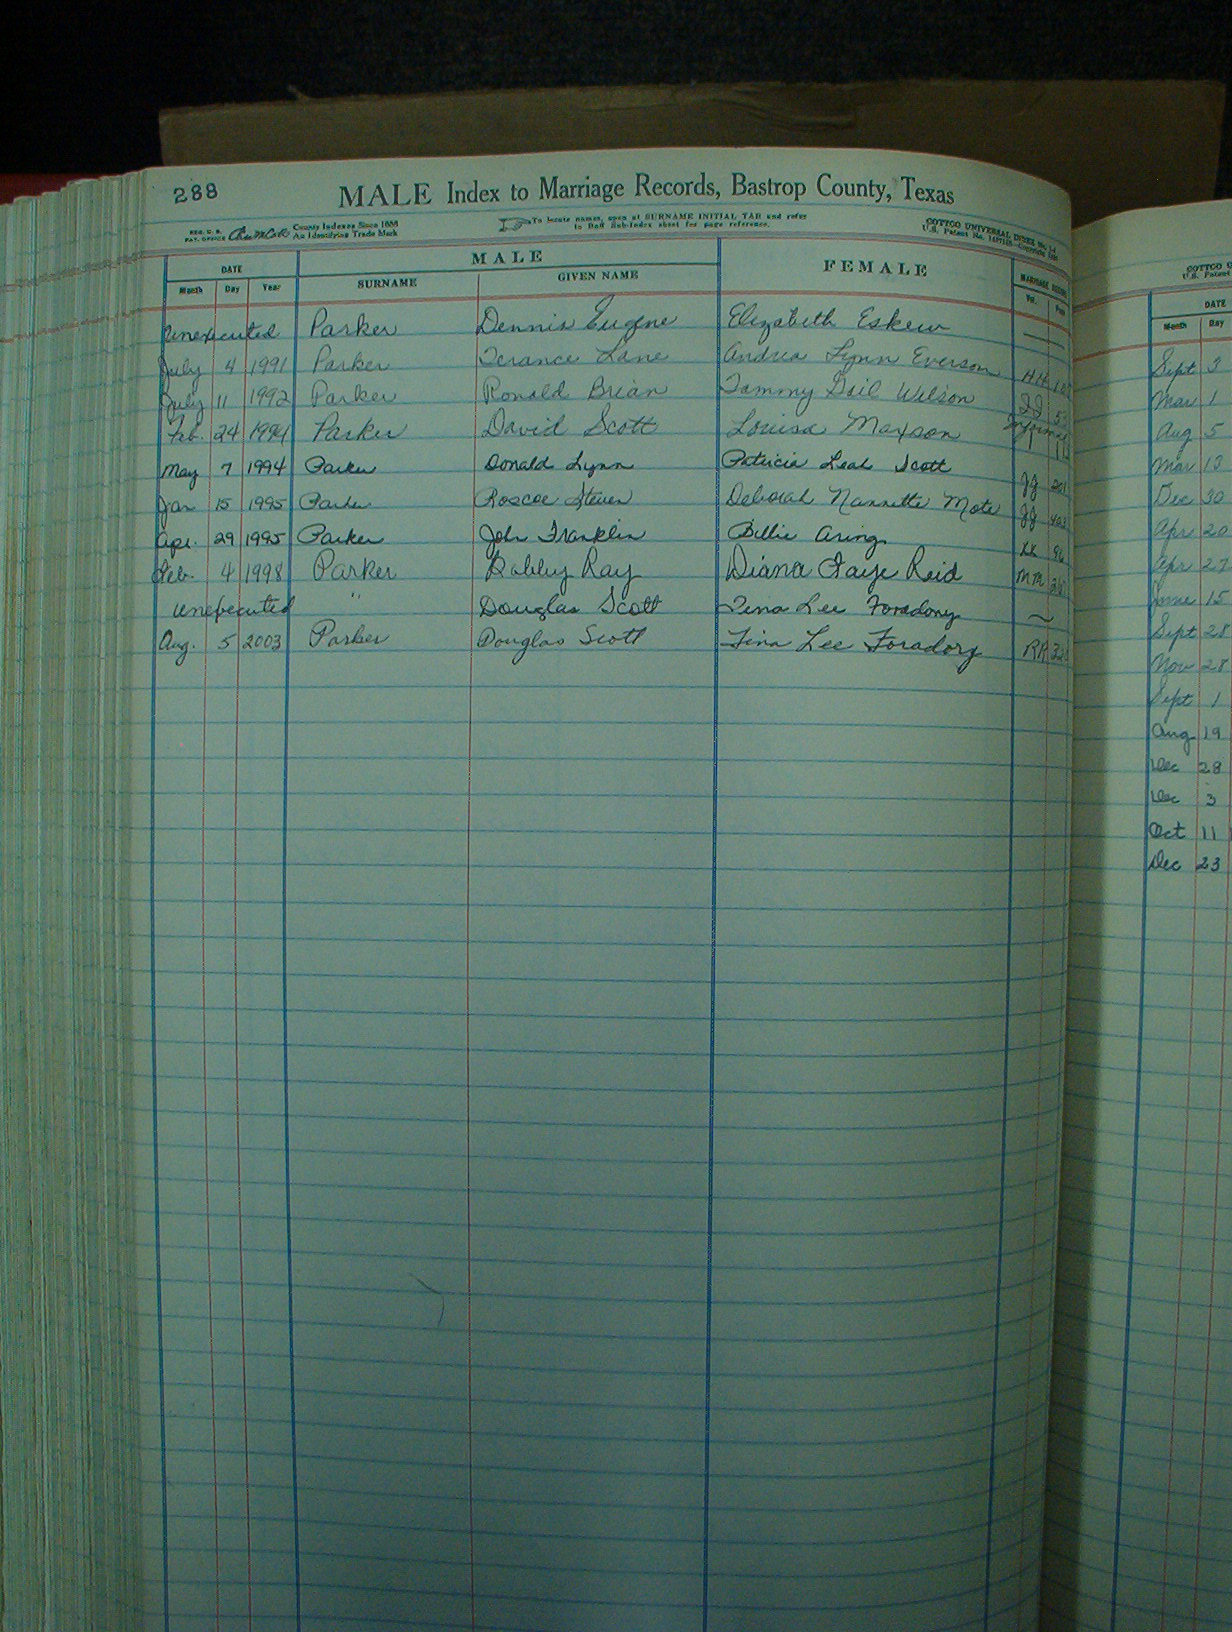 288 MALE Index to Marriage Records, Bastrop County, Texas
REG. U.S. PAT. OFFICE County Indexes Since 1888 An Identifying Trade Mark
To locate names, open at SURNAME INITIAL TAB and refer to Buff Sub-Index sheet for page reference.
COTTCO UNIVERSAL INDEX
U.S. Patent No.
DATE MALE FEMALE MARRIAGE RECORD
Month Day Year SURNAME GIVEN NAME Vol. Page
Unexecuted Parker Dennis Eugene Elizabeth Eskew
July 4 1991 Parker Terance Lane Andrea Lynn Everson HH
July 11 1992 Parker Ronald Brian Tammy Gail Wilson
Feb. 24 1994 Parker David Scott Louisa Maxson Informal
May 7 1994 Parker Donald Lynn Patricia Leah Scott
Jan 15 1995 Parker Roscoe Steven Deborah Nannette Mote
Apr. 29 1995 Parker John Franklin Billie Aring KK
Feb. 4 1998 Parker Bobby Ray Diana Faye Reid MM
Unexecuted " Douglas Scott Tina Lee Foradory
Aug. 5 2003 Parker Douglas Scott Tina Lee Foradory RR
COTTCO
U.S. Patent
DATE
Month Day
Sept 3
Mar 1
Aug 5
Mar 13
Dec 30
Apr 20
Apr 27
June 15
Sept 28
Nov 28
Sept 1
Aug 19
Dec 28
Dec 3
Oct 11
Dec 23